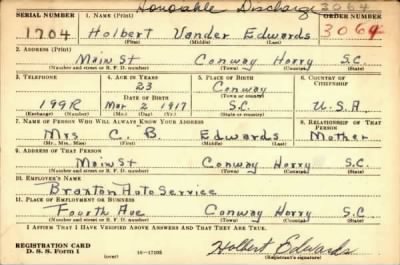 Honorable Discharge 3064
SERIAL NUMBER 1. NAME (Print) ORDER NUMBER
1704 Holbert Vander Edwards 3064
(First) (Middle) (Last)
2. ADDRESS (Print)
Main St Conway Horry S.C.
(Number and street or R. F. D. number) (Town) (County) (State)
3. TELEPHONE 4. AGE IN YEARS 5. PLACE OF BIRTH 6. COUNTRY OF CITIZENSHIP
23 Conway
DATE OF BIRTH (Town or county)
199R Mar 2 1917 S.C. U.S.A.
(Exchange) (Number) (Mo.) (Day) (Yr.) (State or country)
7. NAME OF PERSON WHO WILL ALWAYS KNOW YOUR ADDRESS 8. RELATIONSHIP OF THAT PERSON
Mrs C. B. Edwards Mother
(Mr., Mrs., Miss) (First) (Middle) (Last)
9. ADDRESS OF THAT PERSON
Main St Conway Horry S.C.
(Number and street or R. F. D. number) (Town) (County) (State)
10. EMPLOYER'S NAME
Auto Service
11. PLACE OF EMPLOYMENT OR BUSINESS
Fourth Ave Conway Horry S.C.
(Number and street or R. F. D. number) (Town) (County) (State)
I AFFIRM THAT I HAVE VERIFIED ABOVE ANSWERS AND THAT THEY ARE TRUE.
REGISTRATION CARD
D. S. S. Form 1 (over) 16—17105 Holbert Edwards
(Registrant's signature)